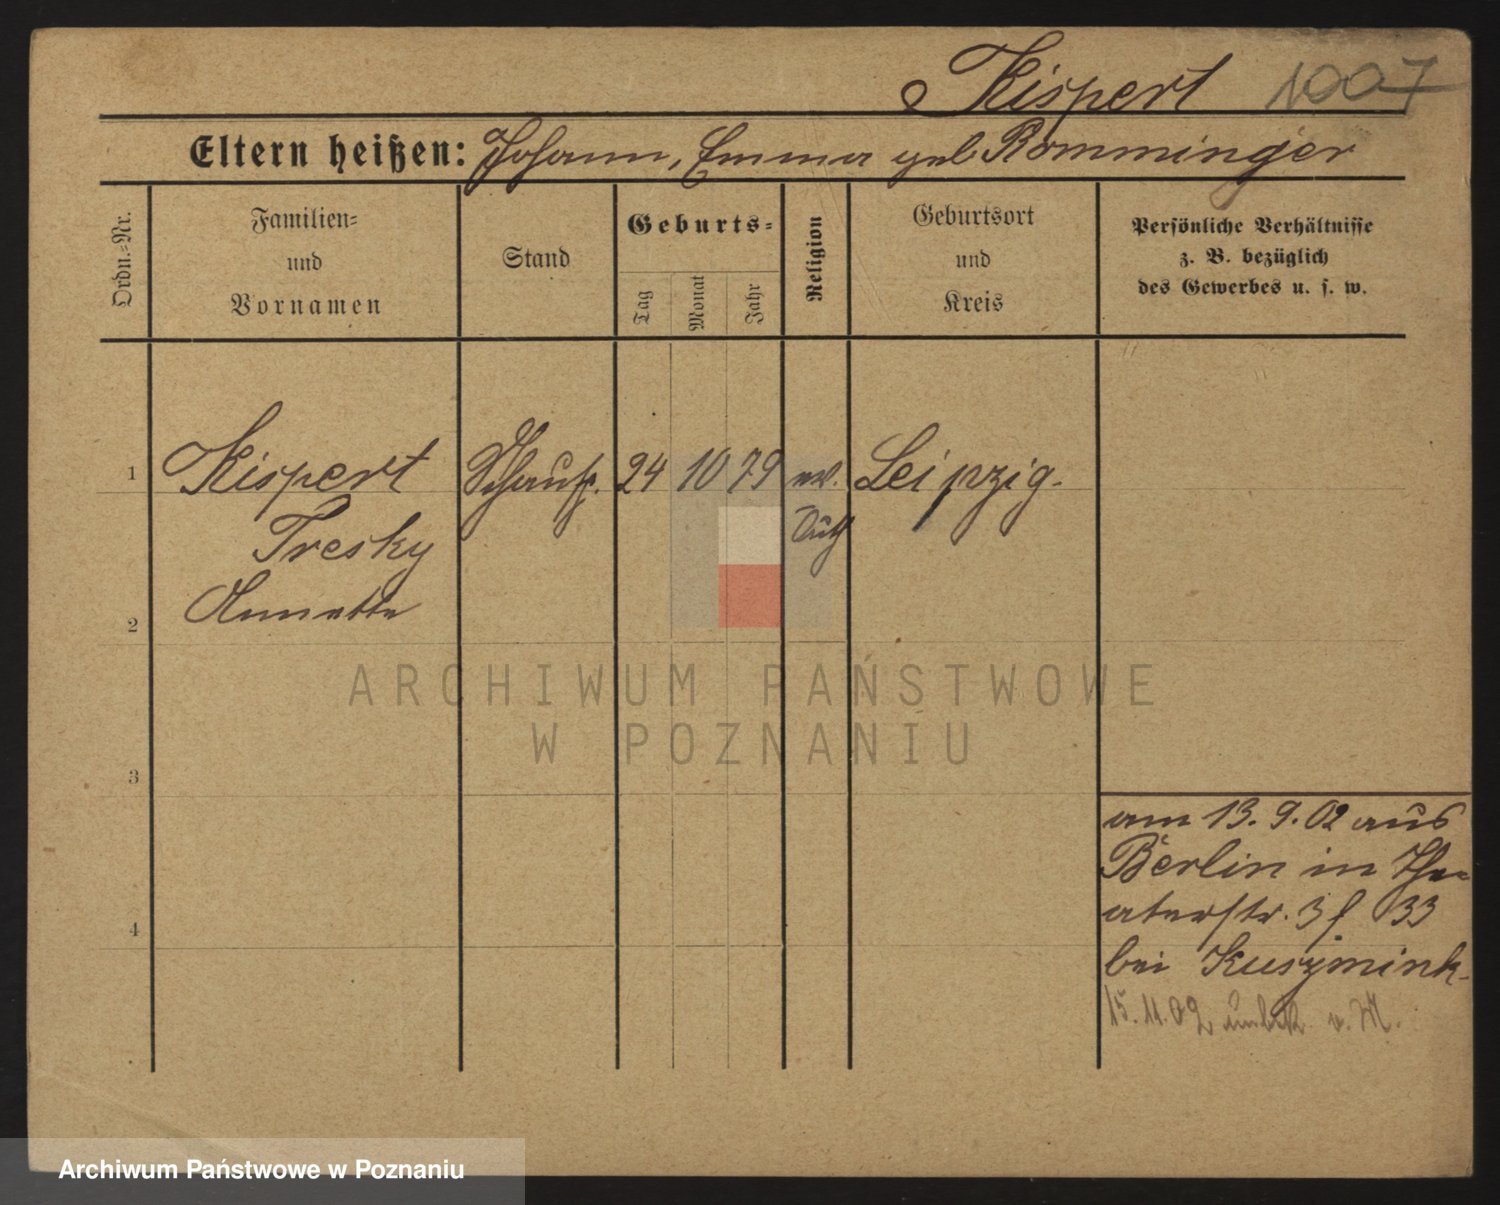 Kispert 1007
Eltern heißen: Johann, Emma geb Romminger
Ordn.-Nr.
Familien-
und
Vornamen
Stand
Geburts-
Tag
Monat
Jahr
Religion
Geburtsort
und
Kreis
Persönliche Verhältnisse
z. B. bezüglich
des Gewerbes u. s. w.
1 Kispert Schausp. 24 10 79 ev. Leipzig.
Tresky
Annette
2
3
4
am 13. 9. 02 aus
Berlin in The-
aterstr. 3 f 033
bei Kuszmink
15. 11. 02 unbek. v. M.
ARCHIWUM PAŃSTWOWE
W POZNANIU
Archiwum Państwowe w Poznaniu